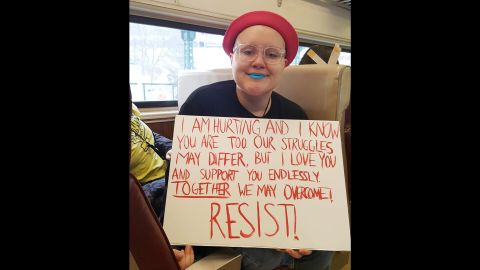 I AM HURTING AND I KNOW
YOU ARE TOO. OUR STRUGGLES
MAY DIFFER, BUT I LOVE YOU
AND SUPPORT YOU ENDLESSLY.
TOGETHER WE MAY OVERCOME!
RESIST!